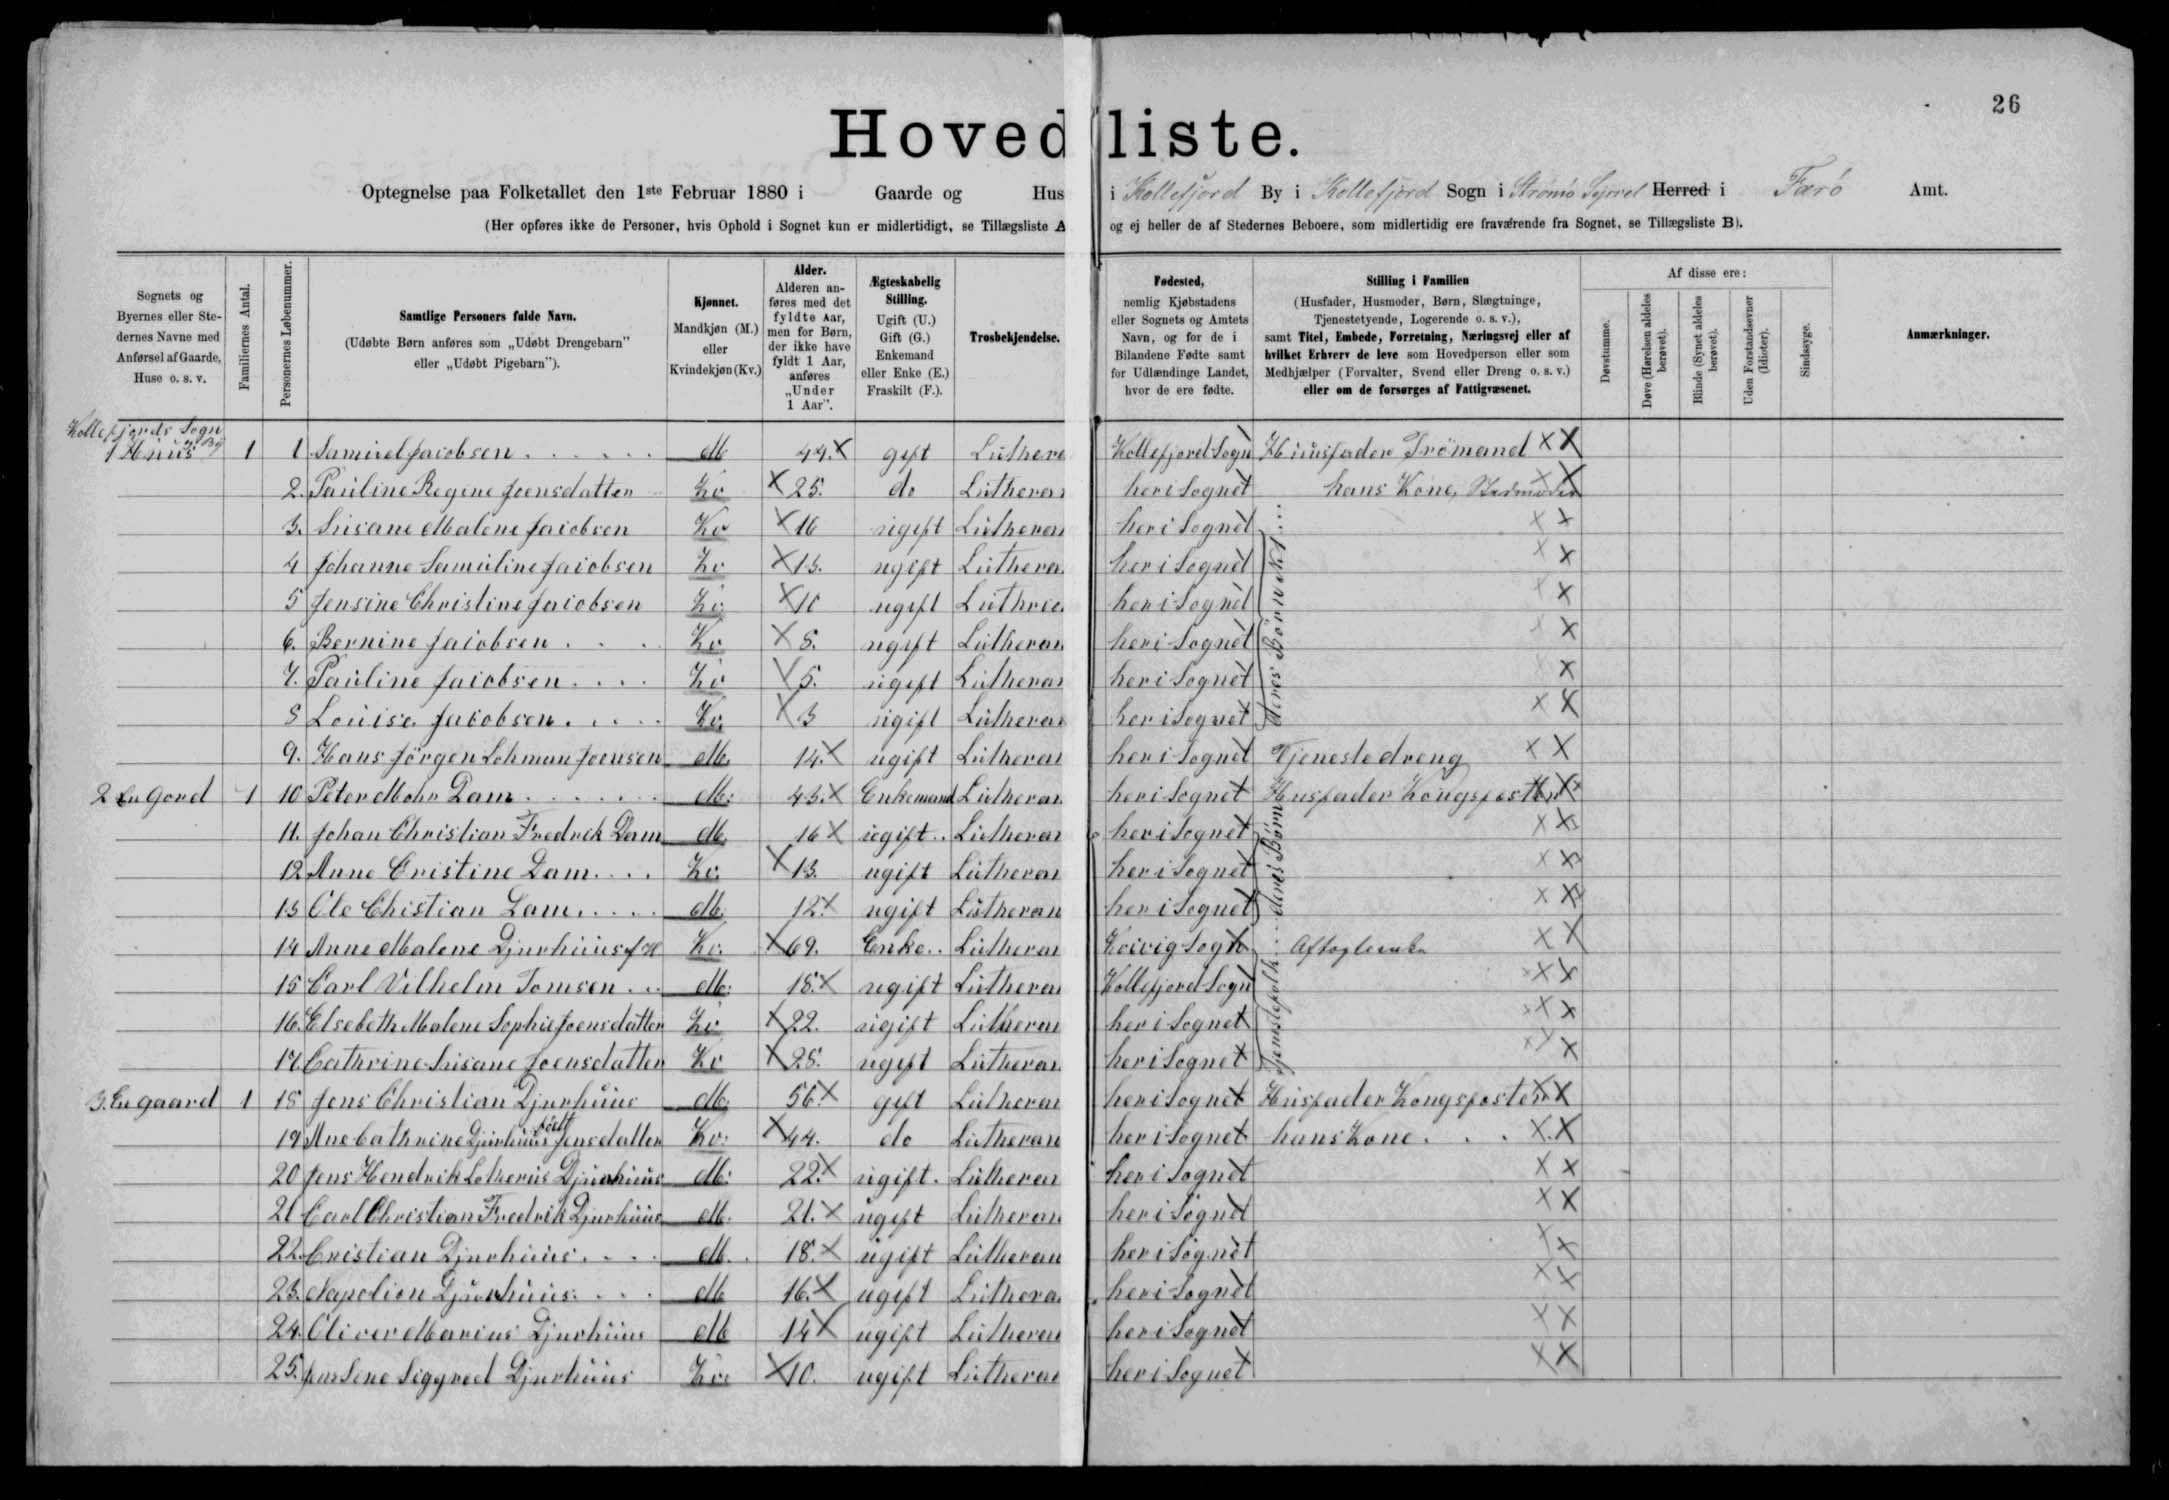 26
Hovedliste.
Optegnelse paa Folketallet den 1ste Februar 1880 i Gaarde og Hus i Kollefjord By i Kollefjord Sogn i Strømø Syssel Herred i Færö Amt.
(Her opføres ikke de Personer, hvis Ophold i Sognet kun er midlertidigt, se Tillægsliste A og ej heller de af Stedernes Beboere, som midlertidig ere fraværende fra Sognet, se Tillægsliste B).
Sognets og Byernes eller Stedernes Navne med Anførsel af Gaarde, Huse o. s. v.
Familiernes Antal.
Personernes Løbenummer.
Samtlige Personers fulde Navn.
(Udøbte Børn anføres som „Udøbt Drengebarn" eller „Udøbt Pigebarn").
Kjønnet.
Mandkjøn (M.) eller Kvindekjøn (Kv.)
Alder.
Alderen anføres med det fyldte Aar, men for Børn, der ikke have fyldt 1 Aar, anføres „Under 1 Aar".
Ægteskabelig Stilling.
Ugift (U.) Gift (G.) Enkemand eller Enke (E.) Fraskilt (F.).
Trosbekjendelse.
Fødested,
nemlig Kjøbstadens eller Sognets og Amtets Navn, og for de i Bilandene Fødte samt for Udlændinge Landet, hvor de ere fødte.
Stilling i Familien
(Husfader, Husmoder, Børn, Slægtninge, Tjenestetyende, Logerende o. s. v.), samt Titel, Embede, Forretning, Næringsvej eller af hvilket Erhverv de leve som Hovedperson eller som Medhjælper (Forvalter, Svend eller Dreng o. s. v.) eller om de forsørges af Fattigvæsenet.
Af disse ere:
Døvstumme.
Døve (Hørelsen aldeles berøvet).
Blinde (Synet aldeles berøvet).
Uden Forstandsevner (Idioter).
Sindssyge.
Anmærkninger.
Kollefjords Sogn
1 Huus 1 1 Samuel Jacobsen M 44. X gift Luthera Kollefjord Sogn Huusfader Tromand X X
2. Pauline Regine Joensdatter Kv X 25. do Lutheran her i Sognet hans Kone, X X
3. Susane Malene Jacobsen Kv X 16 ugift Lutheran her i Sognet X X
4 Johanne Samuline Jacobsen Kv X 13. ugift Luthera her i Sognet X X
5 Jensine Christine Jacobsen Kv X 10 ugift Luthree her i Sognet X X
6. Bernine Jacobsen Kv X 8. ugift Lutheran her i Sognet X
7. Pauline Jacobsen Kv X 5. ugift Lutheran her i Sognet X
8 Louise Jacobsen Kv. X 3 ugift Lutheran her i Sognet X X
deres Børn
9. Hans Jörgen Lohman Joensen M. 14. X ugift Lutheran her i Sognet Tjenestedreng X X
2 En Gord 1 10 Peter Mohr Dam M. 43. X Enkemand Lutheran her i Sognet Husfader Kongsfæster X
11. Johan Christian Fredrik Dam M. 16 X ugift Lutheran her i Sognet X X
12 Anne Cristine Dam Kv. X 13. ugift Lutheran her i Sognet X X
13 Ole Chistian Dam M. 12. X ugift Lutheran her i Sognet X X
deres Børn
14 Anne Malene Djurhuus f H Kv. X 69. Enke Lutheran Kvivig Sogn Aftagtsenke X X
15 Carl Vilhelm Tomsen M. 18. X ugift Lutheran Kollefjord Sogn X X
16. Elsebeth Malene Sophie Joensdatter Kv X 22. ugift Lutheran her i Sognet X X
17. Cathrine Susane Joensdatter Kv X 28. ugift Lutheran her i Sognet X X
Tjenestefolk
3. En gaard 1 18 Jens Christian Djurhuus M. 56. X gift Lutheran her i Sognet Husfader Kongsfæster X X
19 Ane Cathrine Djurhuus født Jensdatter Kv. X 44. do Lutheran her i Sognet hans Kone X X
20 Jens Hendrik Lutherus Djurhuus M. 22. X ugift. Lutheran her i Sognet X X
21 Carl Christian Fredrik Djurhuus M. 21. X ugift Lutheran her i Sognet X X
22. Cristian Djurhuus M. 18. X ugift Lutheran her i Sognet X X
23. Napolion Djurhuus M 16. X ugift Luthera her i Sognet X X
24. Oliver Marius Djurhuus M 14 X ugift Lutheran her i Sognet X X
25. Jensine Siggved Djurhuus Kv. X 10. ugift Lutheran her i Sognet X X